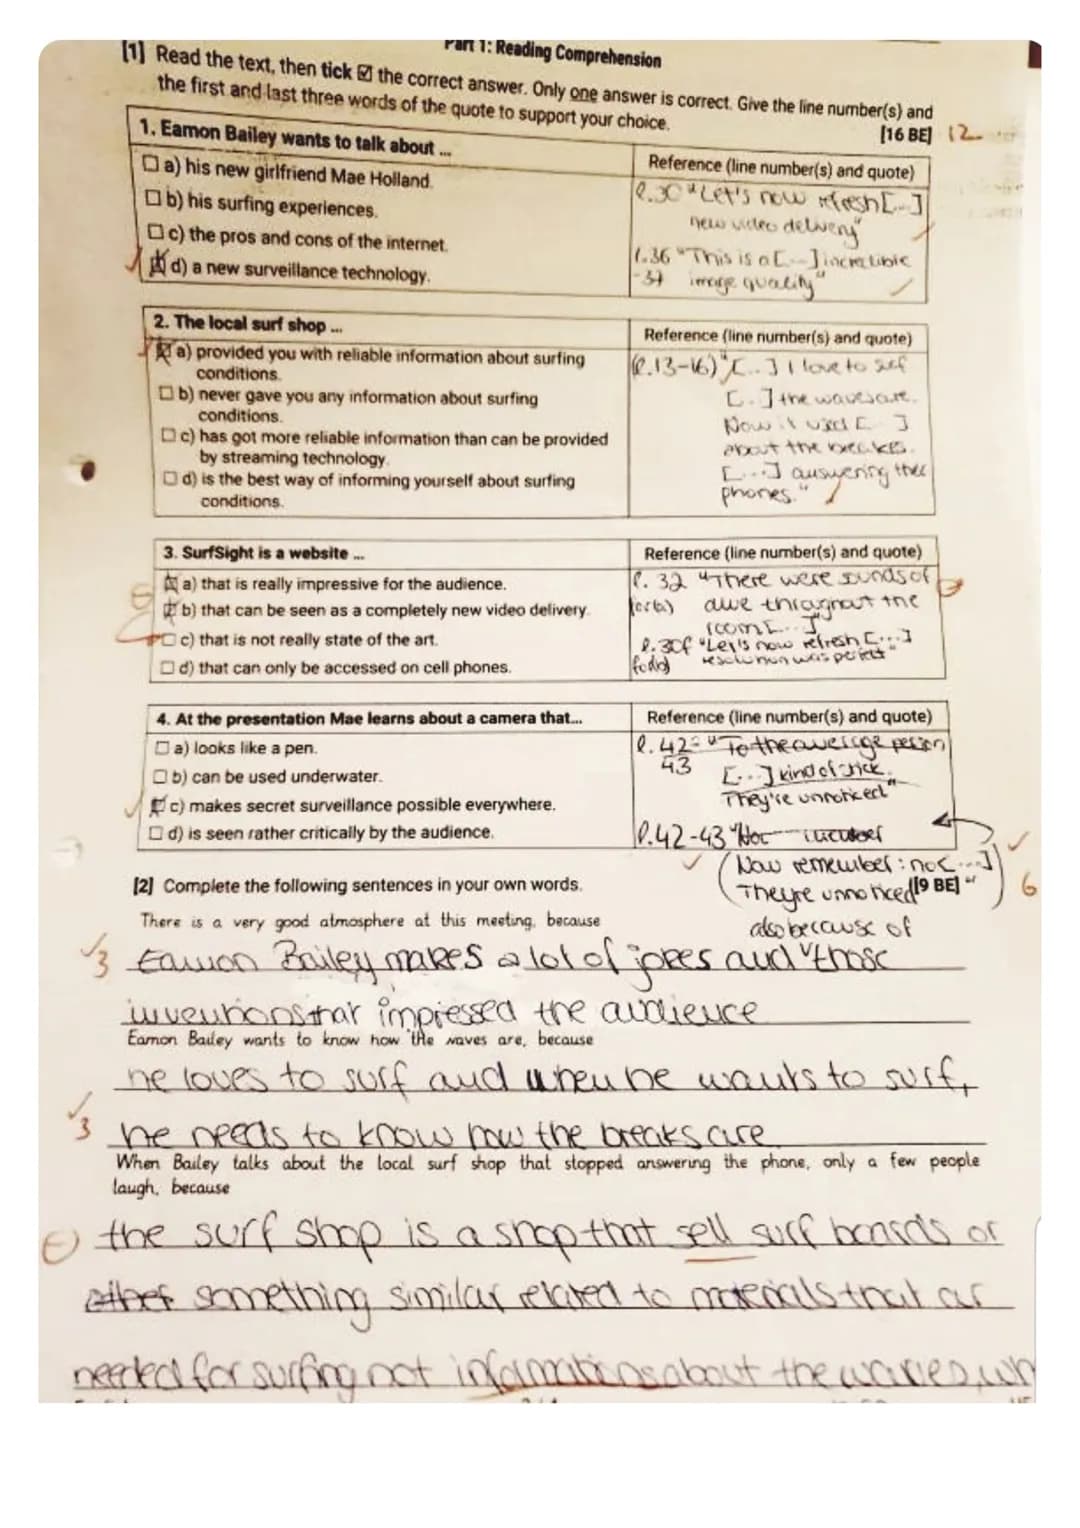 Part 1: Reading Comprehension
[1] Read the text, then tick ☑ the correct answer. Only one answer is correct. Give the line number(s) and
the first and last three words of the quote to support your choice.
[16 BE] 12
1. Eamon Bailey wants to talk about ...
Reference (line number(s) and quote)
☐ a) his new girlfriend Mae Holland.
☐ b) his surfing experiences.
☐ c) the pros and cons of the internet.
☒ d) a new surveillance technology.
l.30 "Let's now refresh [...]
new video delivery"
l.36 "This is a [...] incredible
-37 image quality"
2. The local surf shop ...
Reference (line number(s) and quote)
☒ a) provided you with reliable information about surfing
conditions.
☐ b) never gave you any information about surfing
conditions.
☐ c) has got more reliable information than can be provided
by streaming technology.
☐ d) is the best way of informing yourself about surfing
conditions.
(l.13-16) "[...] I love to surf
[...] the waves are.
Now it used [...]
about the breakes.
[...] answering their
phones."
3. SurfSight is a website ...
Reference (line number(s) and quote)
☒ a) that is really impressive for the audience.
☒ b) that can be seen as a completely new video delivery.
☐ c) that is not really state of the art.
☐ d) that can only be accessed on cell phones.
l. 32 "There were sounds of
awe throughout the
room [...]"
l.30f "Let's now refresh [...]
resolution was perfect"
4. At the presentation Mae learns about a camera that...
Reference (line number(s) and quote)
☐ a) looks like a pen.
☐ b) can be used underwater.
☒ c) makes secret surveillance possible everywhere.
☐ d) is seen rather critically by the audience.
l. 42-43 "To the average person
[...] kind of stick.
They're unnoticed"
l.42-43
(Now remember: not [...]
They're unnoticed")
[2] Complete the following sentences in your own words.
[9 BE] 6
There is a very good atmosphere at this meeting, because
also because of
3 Eamon Bailey makes a lot of jokes and those
inventions that impressed the audience
Eamon Bailey wants to know how the waves are, because
he loves to surf and when he wants to surf,
3 he needs to know how the breaks are
When Bailey talks about the local surf shop that stopped answering the phone, only a few people
laugh, because
the surf shop is a shop that sell surf boards or
something similar related to materials that ar
needed for surfing not informations about the waves, wh